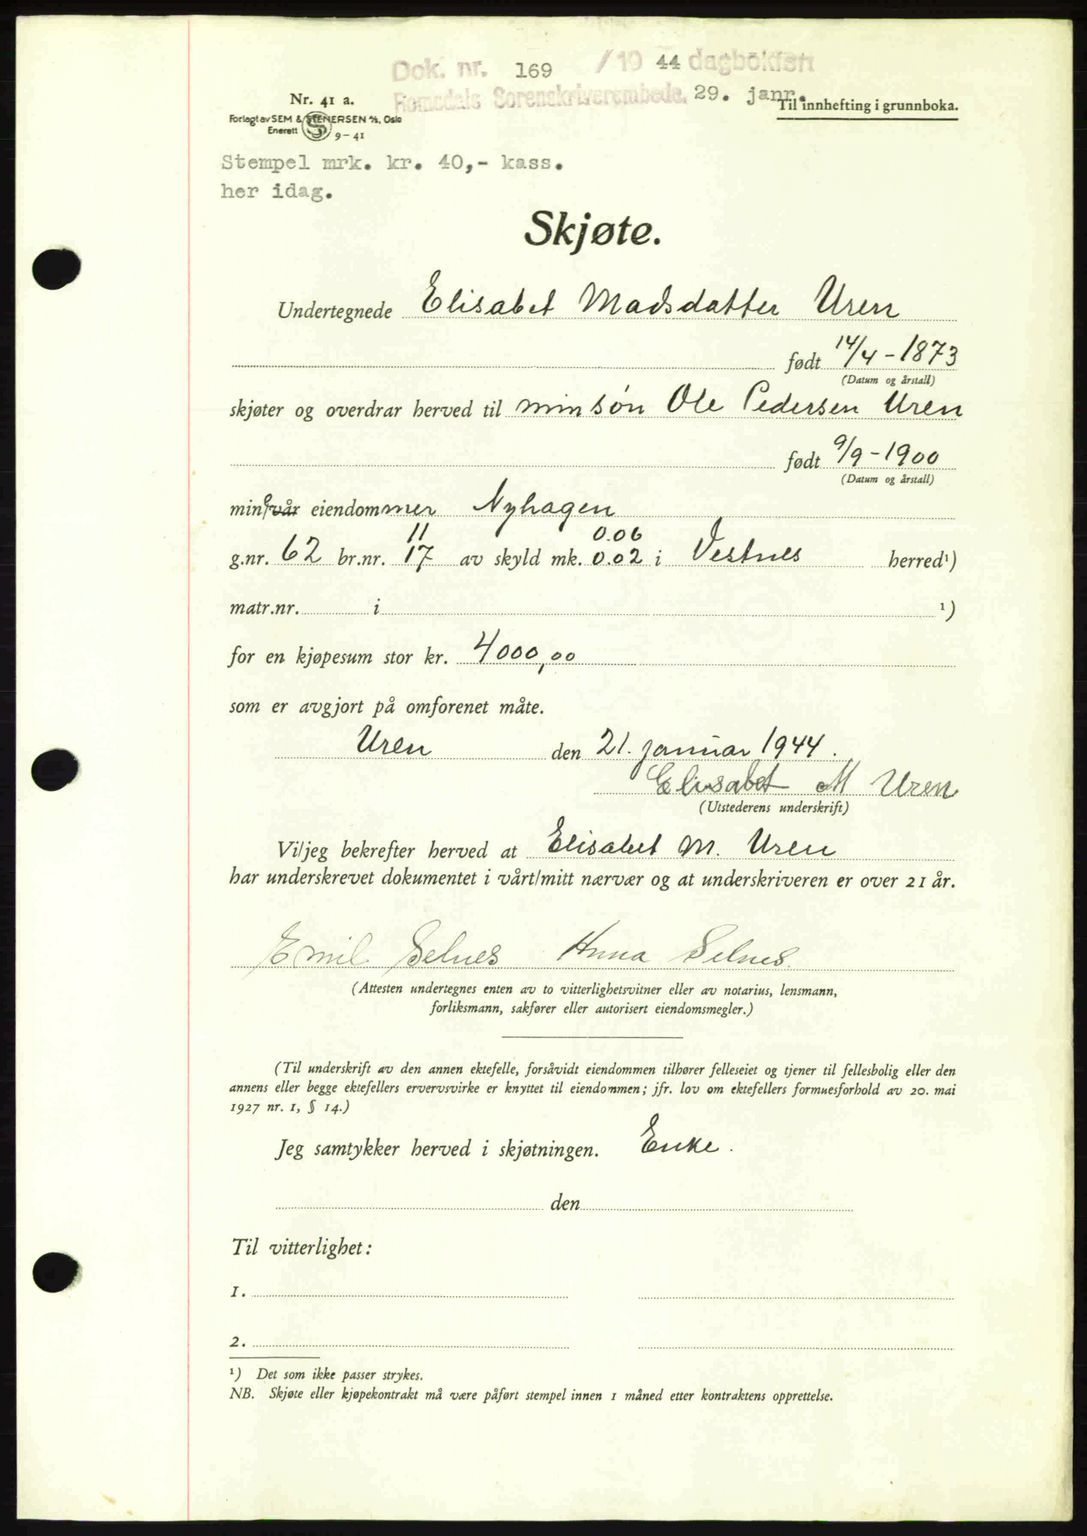 Dok. nr. 169 /19 44 dagbokført
Romsdals Sorenskriverembede, 29. janr.
Nr. 41 a.
Til innhefting i grunnboka.
Forlagt av SEM & STENERSEN A/S, Oslo
Enerett S 9-41
Stempel mrk. kr. 40,- kass.
her idag.
Skjøte.
Undertegnede Elisabet Madsdatter Uren
født 14/4-1873
(Datum og årstall)
skjøter og overdrar herved til min søn Ole Pedersen Uren
født 9/9-1900
(Datum og årstall)
mine/vår eiendommer Nyhagen
11 0.06
g.nr. 62 br.nr. 17 av skyld mk. 0.02 i Vestnes herred¹)
matr.nr. i ¹)
for en kjøpesum stor kr. 4000,00
som er avgjort på omforenet måte.
Uren den 21. januar 1944.
Elisabet M Uren
(Utstederens underskrift)
Vi/jeg bekrefter herved at Elisabet M. Uren
har underskrevet dokumentet i vårt/mitt nærvær og at underskriveren er over 21 år.
Emil Selnes Anna Selnes.
(Attesten undertegnes enten av to vitterlighetsvitner eller av notarius, lensmann,
forliksmann, sakfører eller autorisert eiendomsmegler.)
(Til underskrift av den annen ektefelle, forsåvidt eiendommen tilhører felleseiet og tjener til fellesbolig eller den
annens eller begge ektefellers ervervsvirke er knyttet til eiendommen; jfr. lov om ektefellers formuesforhold av 20. mai
1927 nr. 1, § 14.)
Jeg samtykker herved i skjøtningen. Enke.
den
Til vitterlighet:
1.
2.
¹) Det som ikke passer strykes.
NB. Skjøte eller kjøpekontrakt må være påført stempel innen 1 måned etter kontraktens opprettelse.